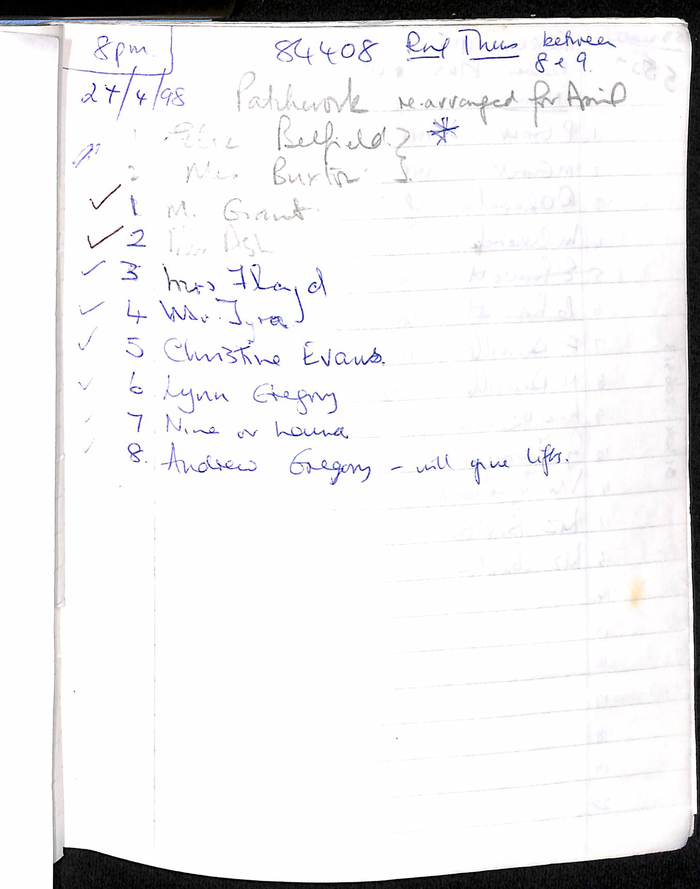 8pm 84408 Ring Thurs between
8 & 9.
27/4/98 Patchwork re-arranged for April
1 Belfield } *
2 Mrs Buxton }
✓ 1 M. Grant
✓ 2 Ash
✓ 3 Mrs Floyd
✓ 4
✓ 5 Christine Evans.
✓ 6 Lynn Gregory
✓ 7 or Louna
✓ 8. Andrew Gregory - will give lifts.